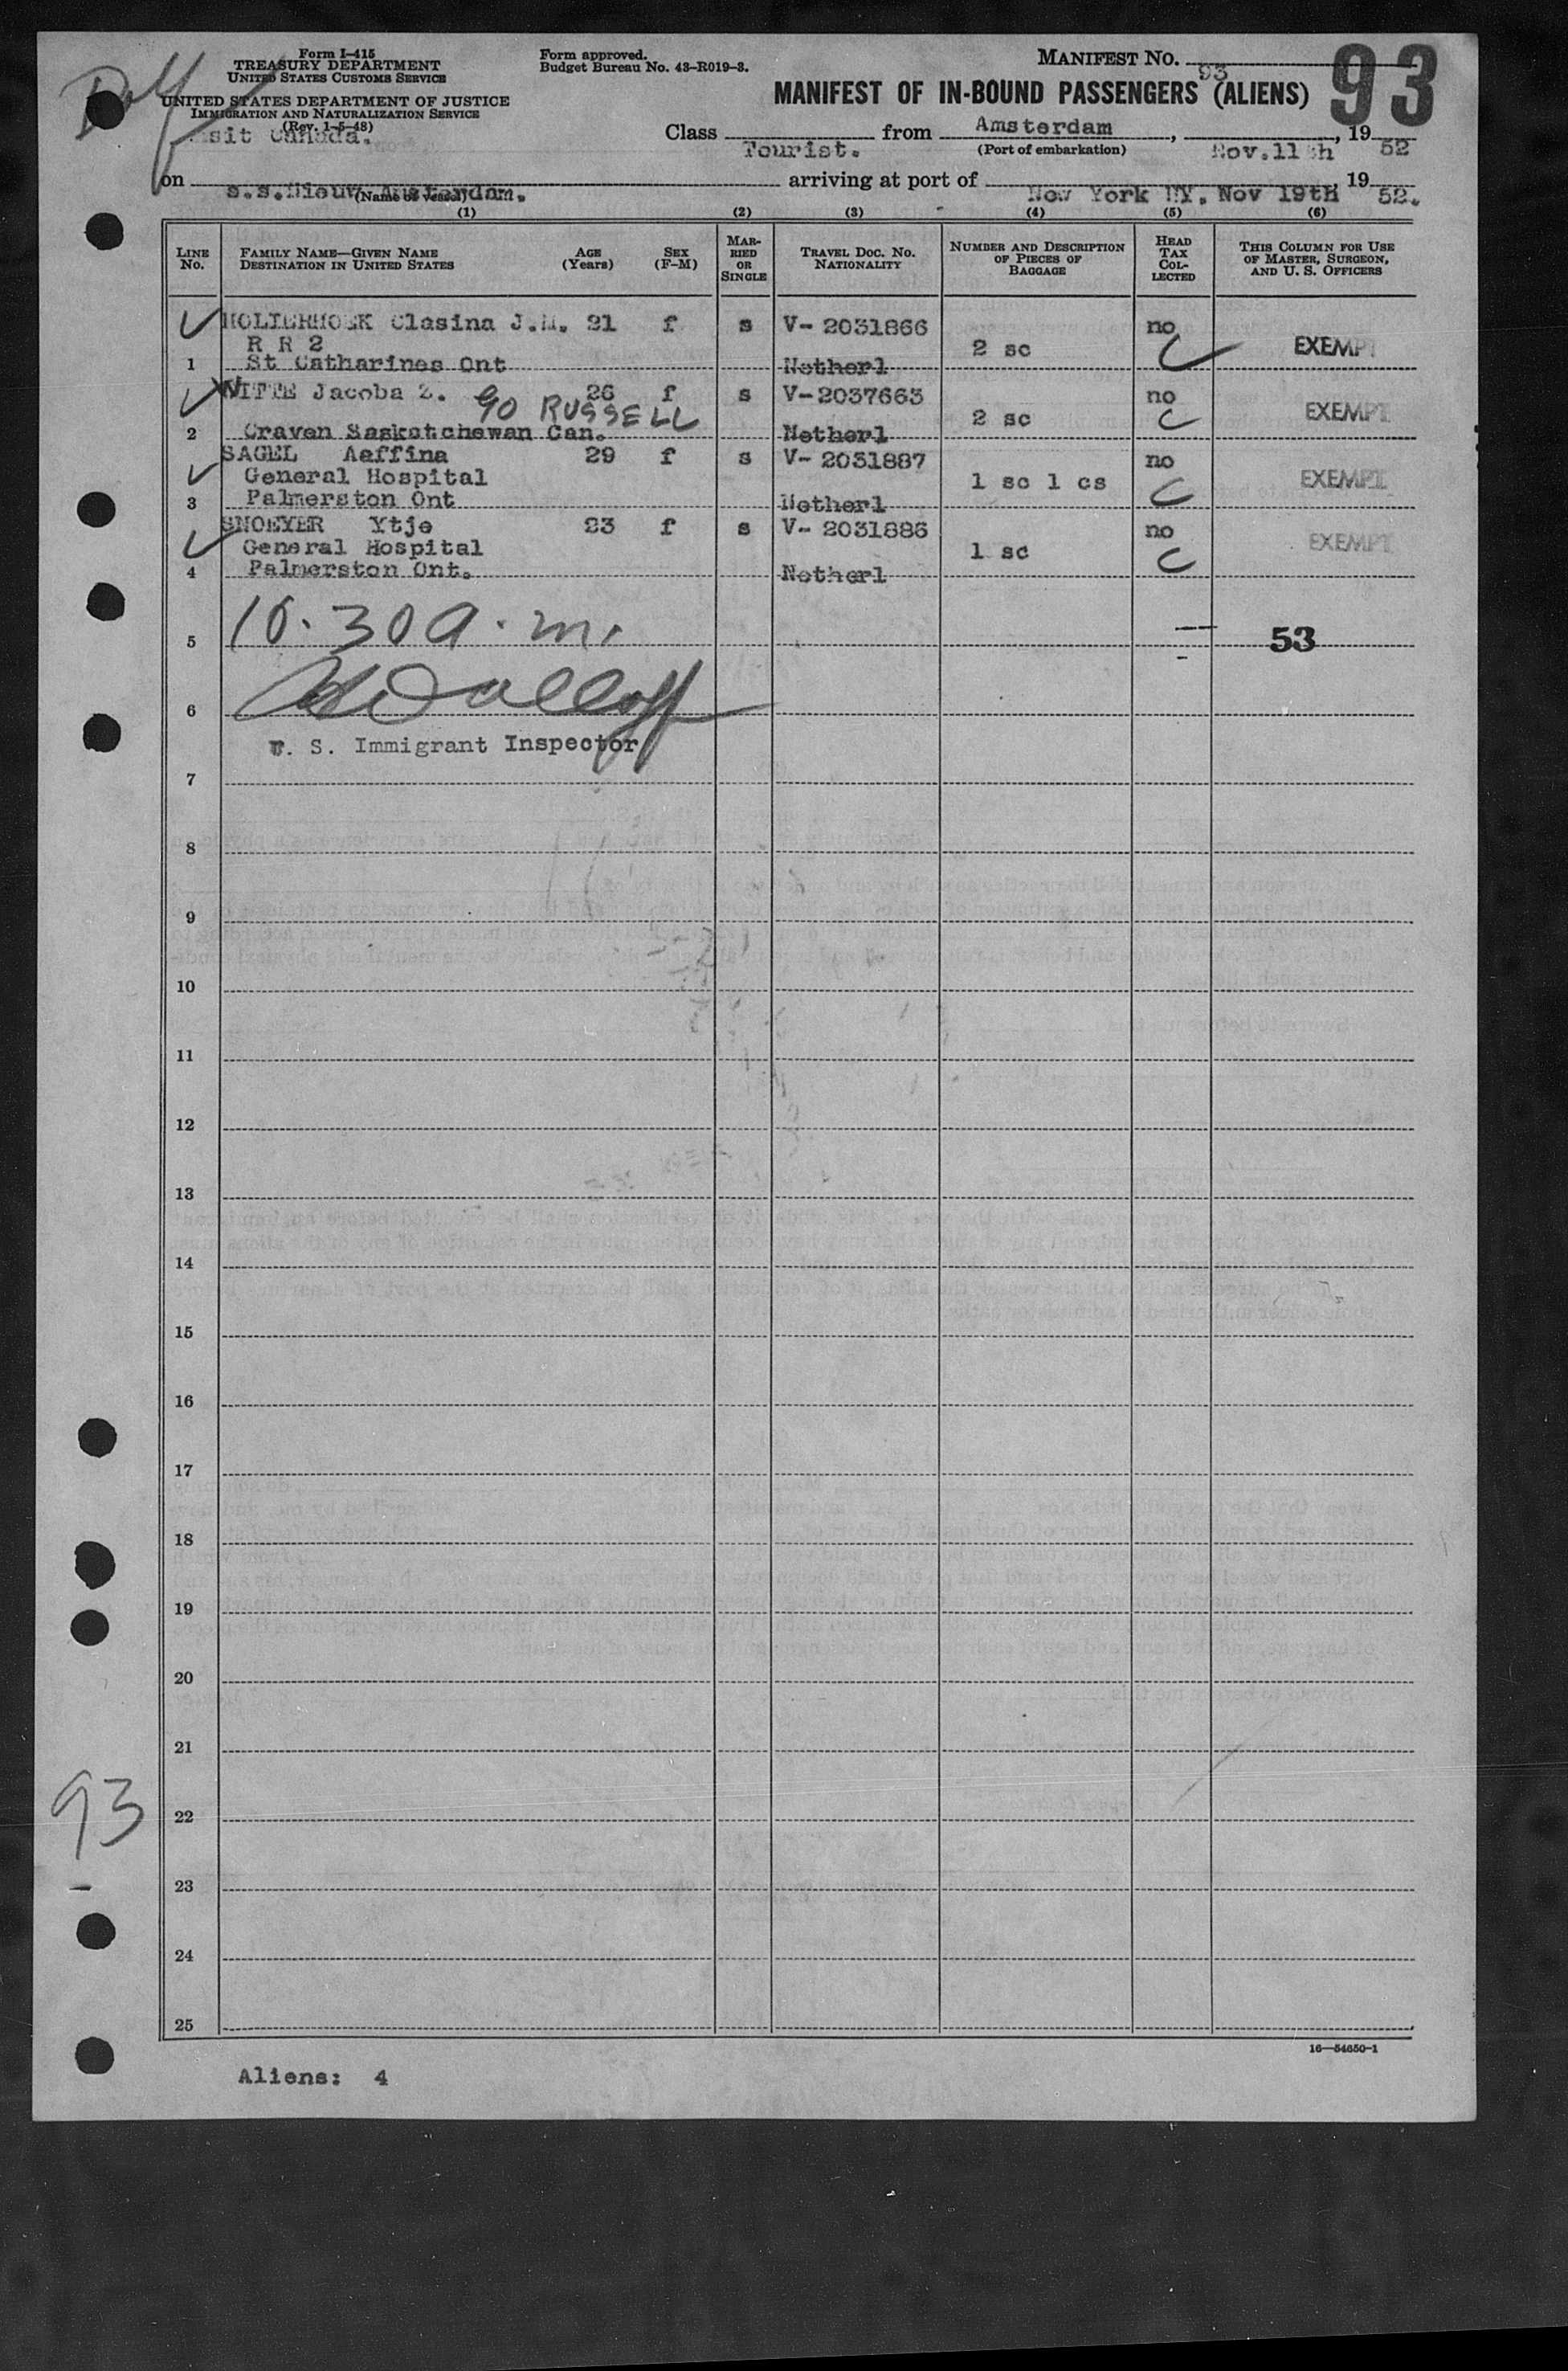 Form I-415
TREASURY DEPARTMENT
UNITED STATES CUSTOMS SERVICE
UNITED STATES DEPARTMENT OF JUSTICE
IMMIGRATION AND NATURALIZATION SERVICE
(Rev. 1-5-48)
Form approved.
Budget Bureau No. 43-R019-3.
MANIFEST NO. 93
93
MANIFEST OF IN-BOUND PASSENGERS (ALIENS)
Canada.
Class Tourist. from Amsterdam, Nov.11th, 19 52
(Port of embarkation)
on s.s.Nieuw Amsterdam. arriving at port of New York NY. Nov 19th 19 52.
(Name of vessel)
(1) (2) (3) (4) (5) (6)
LINE NO.
FAMILY NAME—GIVEN NAME
DESTINATION IN UNITED STATES
AGE (Years)
SEX (F-M)
MARRIED OR SINGLE
TRAVEL DOC. NO.
NATIONALITY
NUMBER AND DESCRIPTION OF PIECES OF BAGGAGE
HEAD TAX COLLECTED
THIS COLUMN FOR USE OF MASTER, SURGEON, AND U. S. OFFICERS
HOLIERHOEK Clasina J.M. 21 f s V- 2031866 no
R R 2 2 sc C EXEMPT
1 St Catharines Ont Netherl
WITTE Jacoba Z. 26 f s V-2037663 no
90 RUSSELL 2 sc C EXEMPT
2 Craven Saskatchewan Can. Netherl
SAGEL Aaffina 29 f s V- 2031887 no
General Hospital 1 sc 1 cs C EXEMPT
3 Palmerston Ont Netherl
SNOEYER Ytje 23 f s V- 2031886 no
General Hospital 1 sc C EXEMPT
4 Palmerston Ont. Netherl
5 10.30 a.m. 53
6
U. S. Immigrant Inspector
7
8
9
10
11
12
13
14
15
16
17
18
19
20
21
22
93
23
24
25
16—54650-1
Aliens: 4